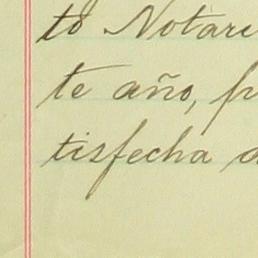 to Notari
te año, p
tisfecha d